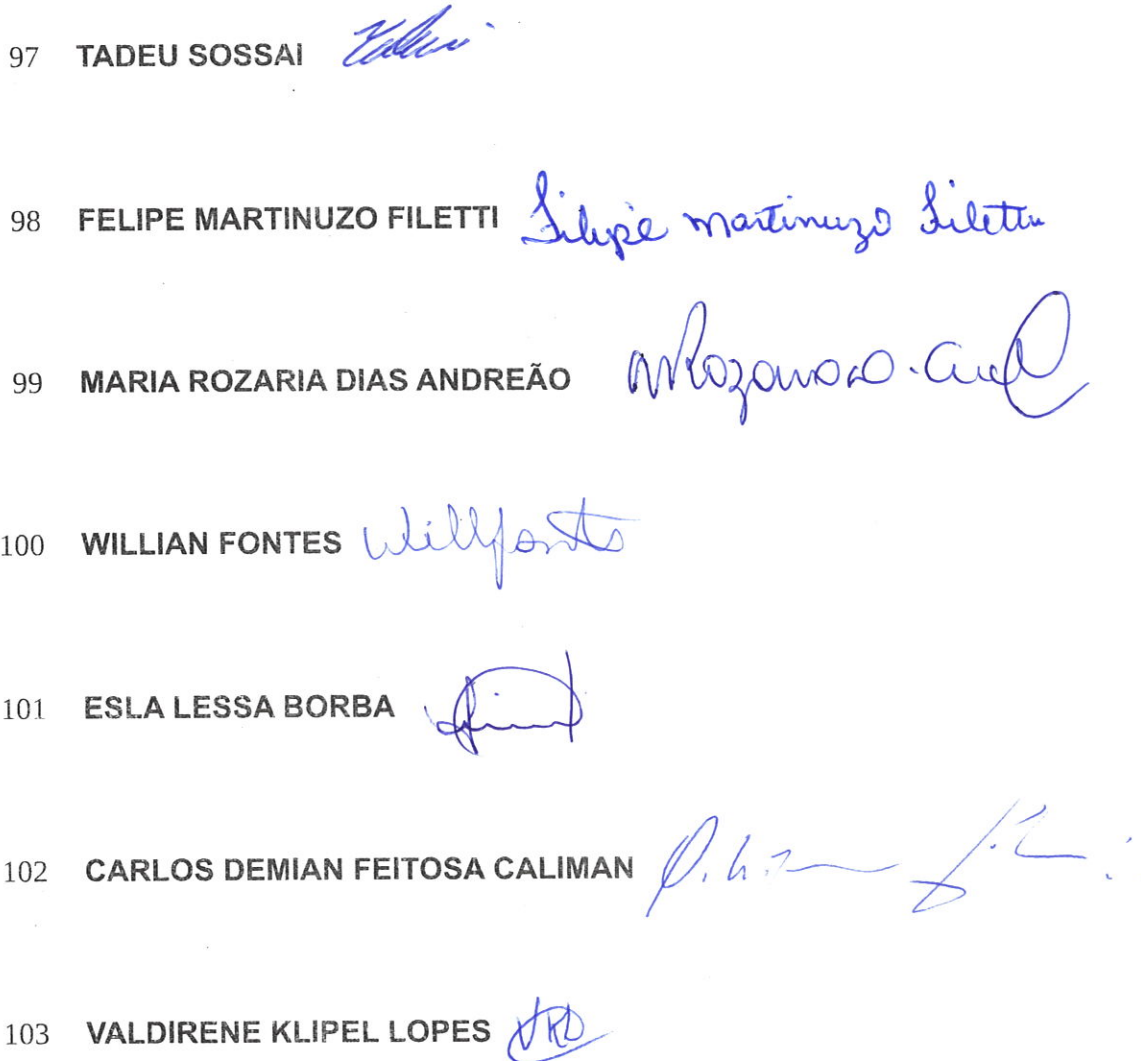 97 TADEU SOSSAI Tadeu
98 FELIPE MARTINUZO FILETTI Felipe Martinuzo Filetti
99 MARIA ROZARIA DIAS ANDREÃO
100 WILLIAN FONTES Willfontes
101 ESLA LESSA BORBA
102 CARLOS DEMIAN FEITOSA CALIMAN
103 VALDIRENE KLIPEL LOPES